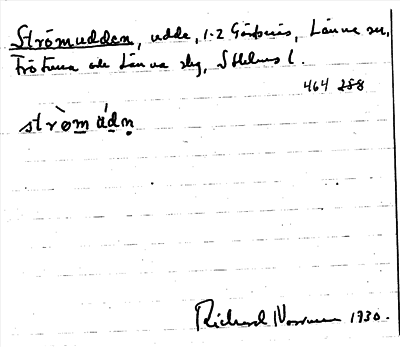 Strömudden, udde, 1:2 Görbsnäs, Länna sn,
Frötuna och Länna slg, Sthlms l.
464 288
stròm úd̥n
Richard Norrman 1930.